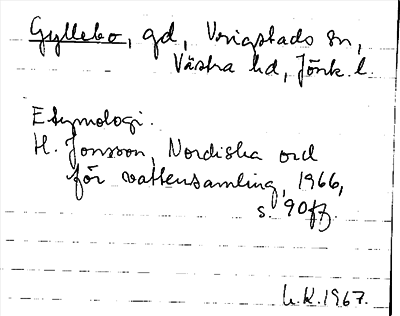 Gyllebo, gd, Vrigstads sn,
Västra hd, Jönk. l.
Etymologi.
H. Jonsson, Nordiska ord
för vattensamling, 1966,
s. 90ff.
L.K. 1967.